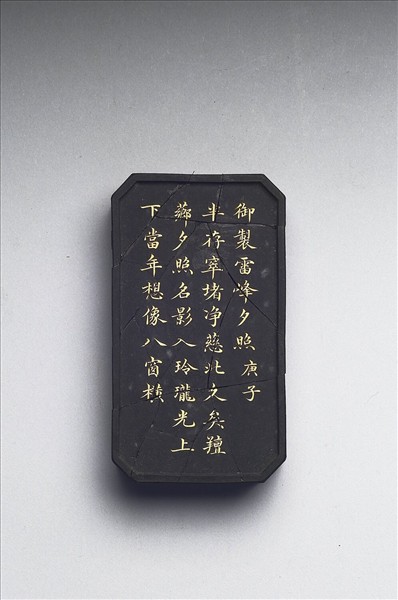 御製雷峰夕照 庚子
半存窣堵净慈北久矣羶
薌夕照名影入玲瓏光上
下當年想像八窗橫